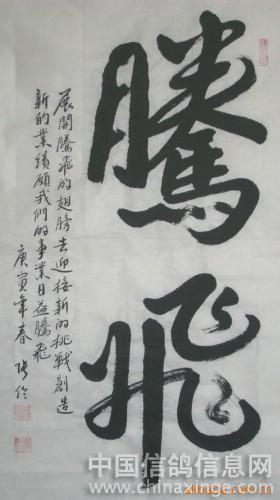 騰飛
展開騰飛的翅膀去迎接新的挑戰創造
新的業績願我們的事業日益騰飛
庚寅年春
中国信鸽信息网
www.chinaxinge.com